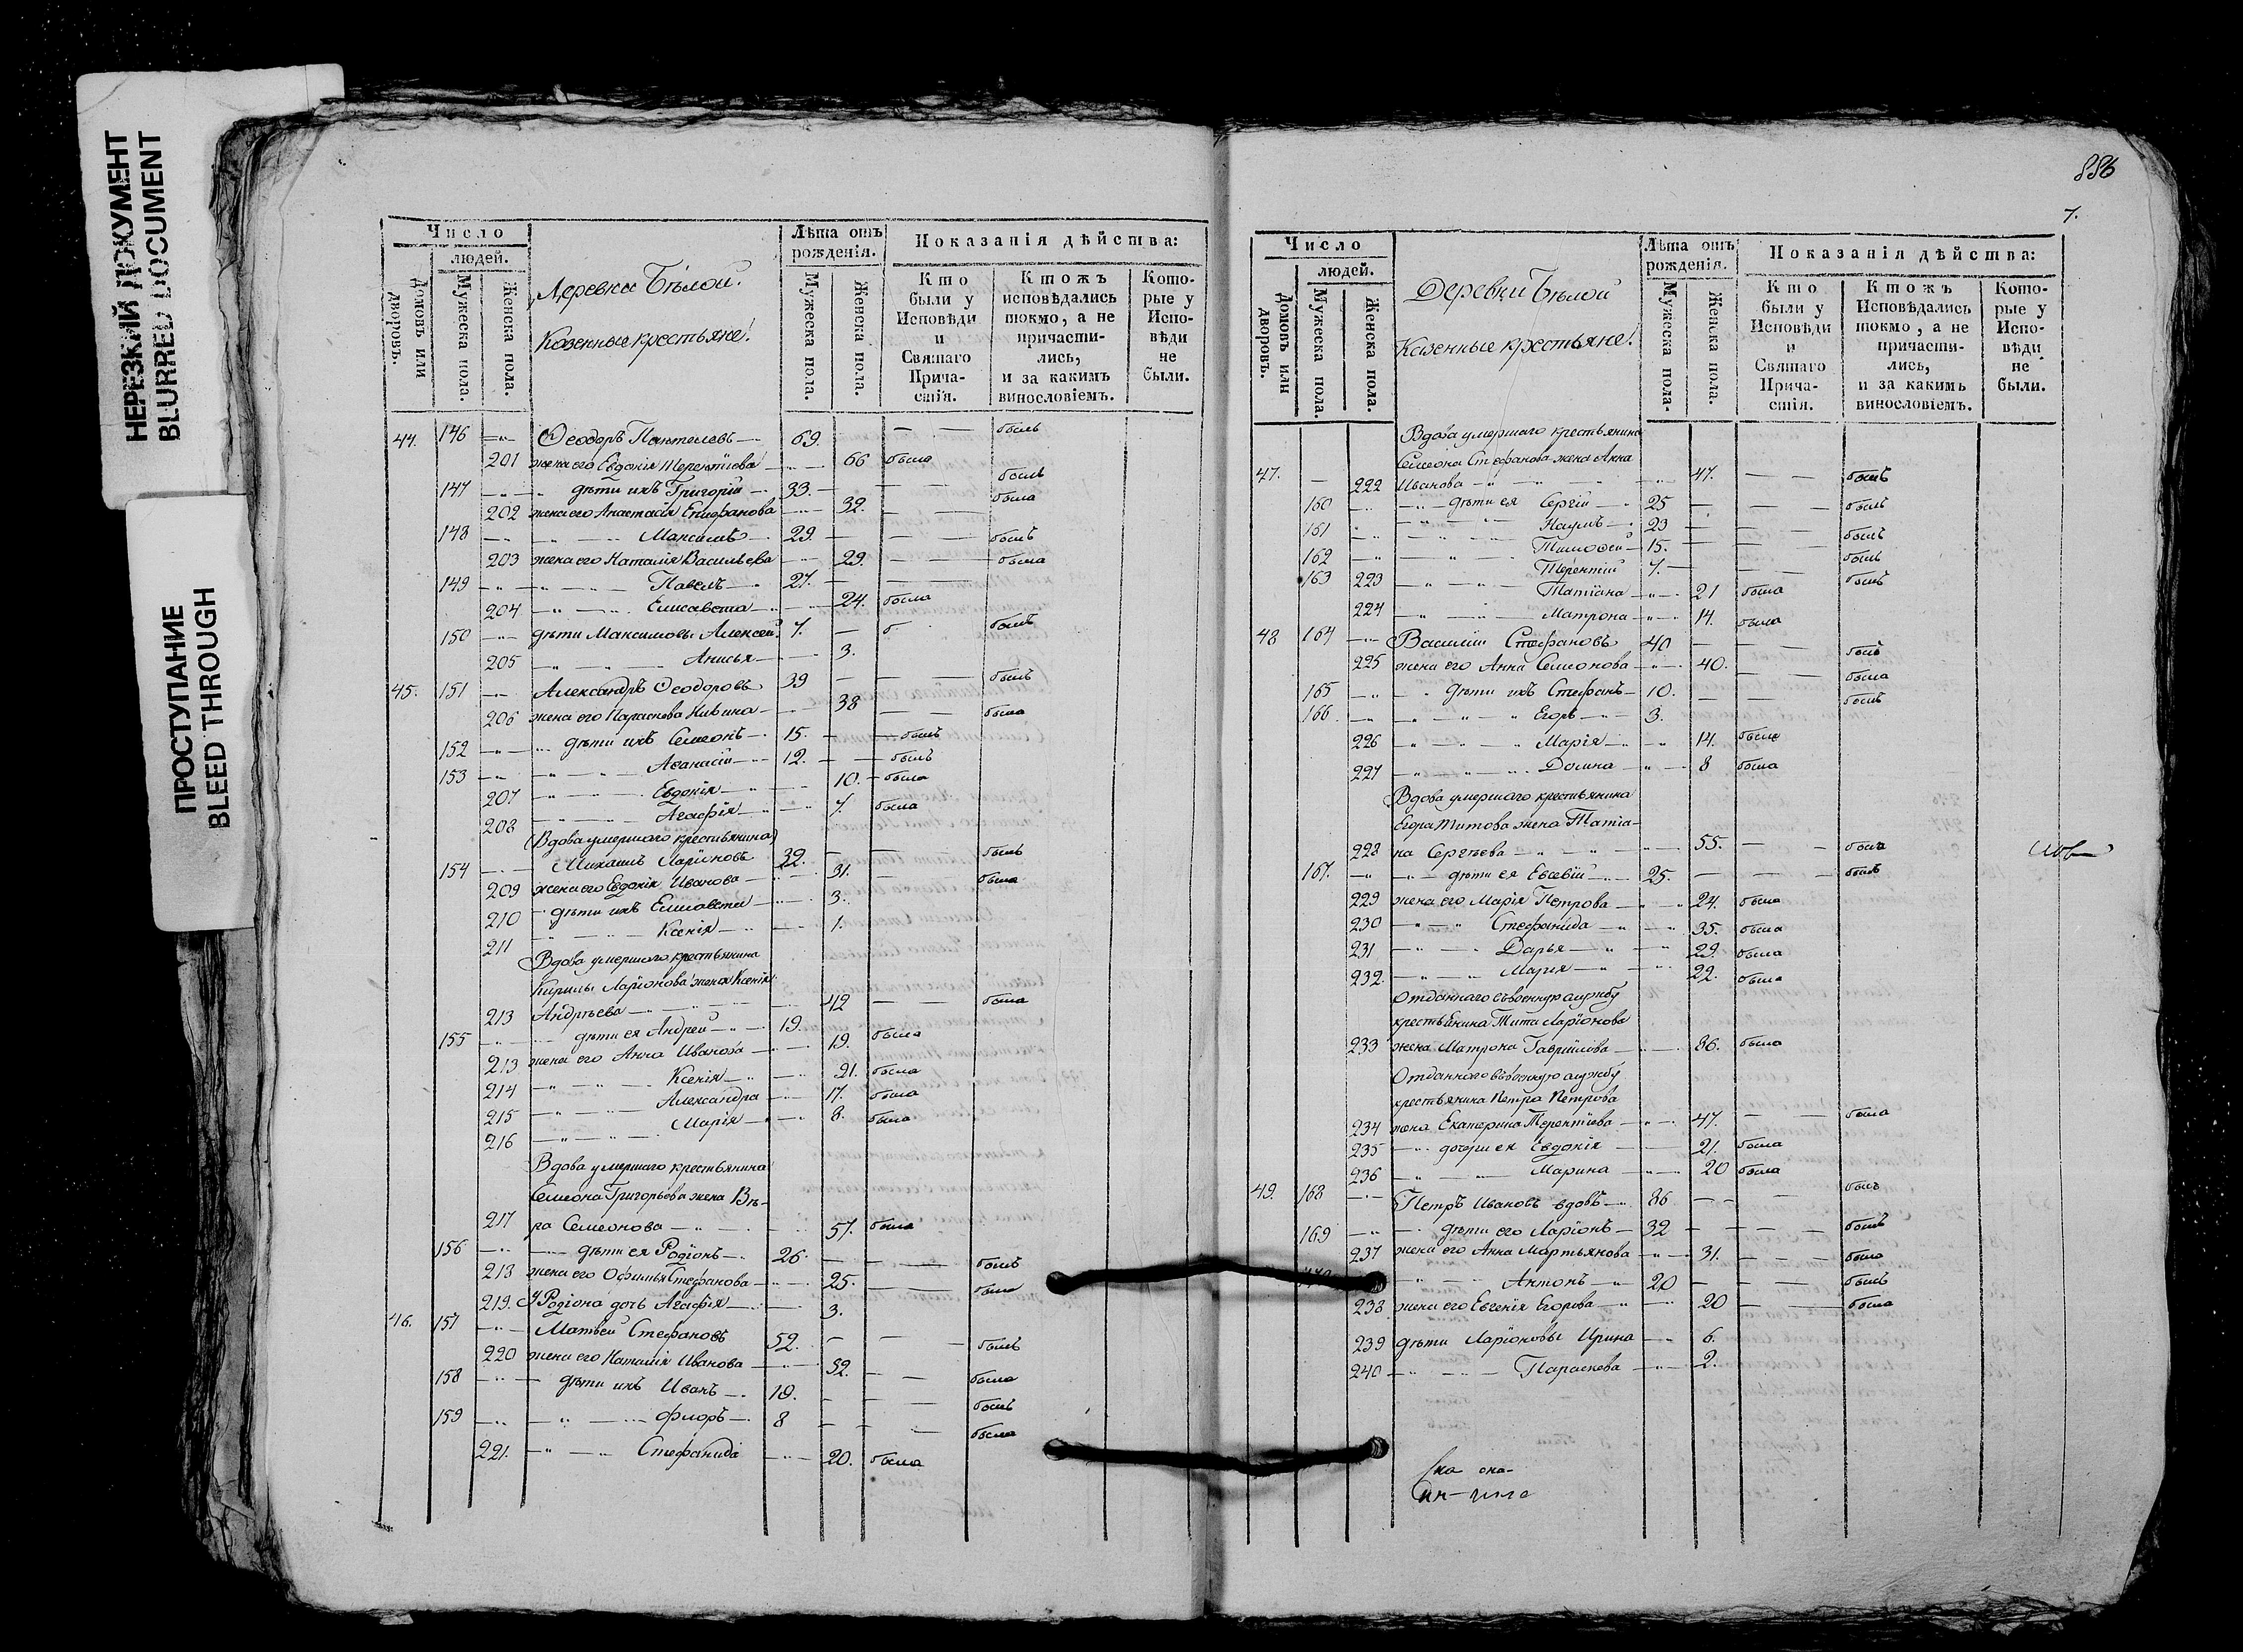 НЕРЕЗКИЙ ДОКУМЕНТ
BLURRED DOCUMENT
ПРОСТУПАНИЕ
BLEED THROUGH
Число
людей.
Домовъ или дворовъ.
Мужеска пола.
Женска пола.
Деревни Бѣлой.
Казенные крестьяне.
Лѣта отъ рожденія.
Мужеска пола.
Женска пола.
Показанія дѣйства:
Кто были у Исповѣди и Святаго Причастія.
Ктожъ исповѣдались токмо, а не причастились, и за какимъ винословіемъ.
Которые у Исповѣди не были.
44. 146 Ѳеодоръ Пантелевъ 69. былъ
201 жена его Евдокія Терентіева 66 была
147 дѣти ихъ Григорій 33. былъ
202 жена его Анастасія Епифанова 32. была
148 Максимъ 29. былъ
203 жена его Наталія Васильева 29. была
149 Павелъ 27.
204 Елисавета 24. была
150 дѣти Максимовы Алексей 7. былъ
205 Анисья 3.
45. 151 Александръ Ѳеодоровъ 39 былъ
206 жена его Параскева 38 была
152 дѣти ихъ Семеонъ 15. былъ
153 Аѳанасій 12. былъ
207 Евдокія 10. была
208 Агафія 7. была
(Вдова умершаго крестьянина)
154 Михаилъ Ларіоновъ 32. былъ
209 жена его Евдокія Иванова 31. была
210 дѣти ихъ Елисавета 3.
211 Ксенія 1.
Вдова умершаго крестьянина
Кирилы Ларіонова жена Ксенія
213 Андрѣева 42 была
155 дѣти ея Андрей 19.
213 жена его Анна Иванова 19. была
214 Ксенія 21. была
215 Александра 17. была
216 Марія 8. была
Вдова умершаго крестьянина
Семеона Григорьева жена Вѣ-
217 ра Семеонова 57. была
156 дѣти ея Родіонъ 26. былъ
218 жена его Офимья Стефанова 25. была
219. У Родіона дочь Агафія 3.
46. 157 Матвей Стефановъ 52. былъ
220 жена его Наталія Иванова 52. была
158 дѣти ихъ Иванъ 19. былъ
159 Флоръ 8 была
221. Стефанида 20. была
886
7.
Число
людей.
Домовъ или дворовъ.
Мужеска пола.
Женска пола.
Деревни Бѣлой
Казенные крестьяне.
Лѣта отъ рожденія.
Мужеска пола.
Женска пола.
Показанія дѣйства:
Кто были у Исповѣди и Святаго Причастія.
Ктожъ Исповѣдались токмо, а не причастились, и за какимъ винословіемъ.
Которые у Исповѣди не были.
Вдова умершаго крестьянина
Семеона Стефанова жена Анна
47. 222 Иванова 47. былъ
160 дѣти ея Сергій 25 былъ
161 Наумъ 23 былъ
162 Тимоѳей 15. былъ
163 Терентій 7. былъ
223 Татіана 21 была
224 Матрона 14. была
48 164 Василій Стефановъ 40 былъ
225 жена его Анна Семеонова 40. была
165 дѣти ихъ Стефанъ 10. былъ
166. Егоръ 3.
226 Марія 14. была
227 Домна 8 была
Вдова умершаго крестьянина
Егора Титова жена Татіа-
228 на Сергѣева 55. была
167. дѣти ея Евсевій 25. былъ
229 жена его Марія Петрова 24. была
230 Стефанида 35. была
231 Дарья 29. была
232. Марія 22. была
Отданнаго въ военную службу
крестьянина Тита Ларіонова
233 жена Матрона Гавріилова 86. была
Отданнаго въ военную службу
крестьянина Петра Петрова
234 жена Екатерина Терентіева 47. была
235 дочери ея Евдокія 21. была
236 Марина 20 была
49. 168 Петръ Ивановъ вдовъ 86 былъ
169 дѣти его Ларіонъ 32 былъ
237 жена его Анна Мартьянова 31. была
170 Антонъ 20 былъ
238 жена его Евгенія Егорова 20 была
239 дѣти Ларіоновы Ирина 6.
240 Параскева 2.